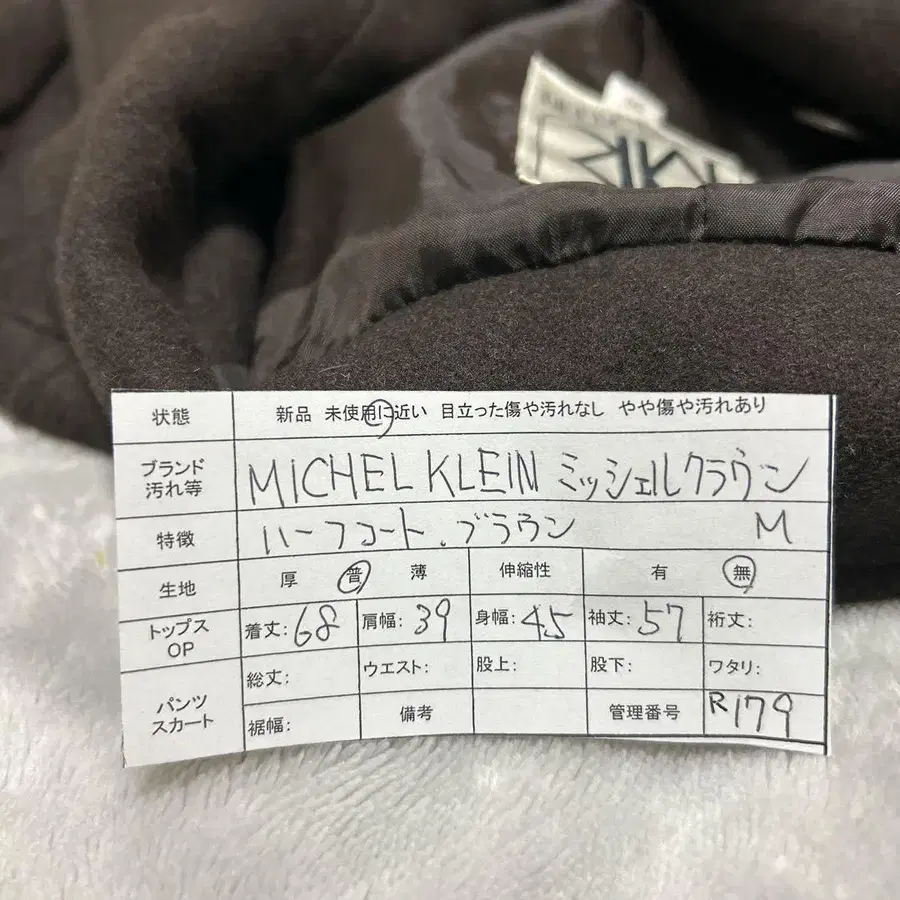 状態 新品 未使用に近い 目立った傷や汚れなし やや傷や汚れあり
ブランド 汚れ等 MICHEL KLEIN ミッシェルクラウン
特徴 ハーフコート.ブラウン M
生地 厚 普 薄 伸縮性 有 無
トップス OP 着丈:68 肩幅:39 身幅:45 袖丈:57 裄丈:
パンツ スカート 総丈: ウエスト: 股上: 股下: ワタリ:
裾幅: 備考 管理番号 R179